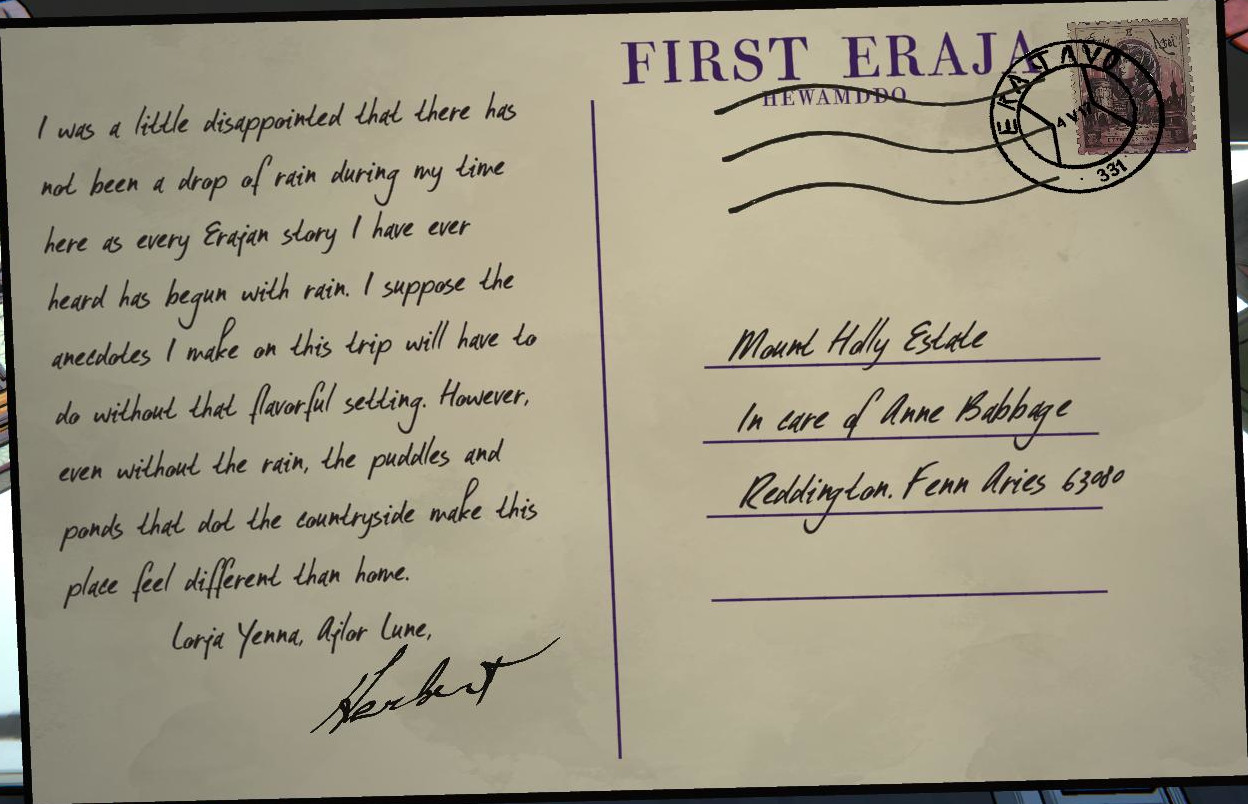 I was a little disappointed that there has
not been a drop of rain during my time
here as every Erajan story I have ever
heard has begun with rain. I suppose the
anecdotes I make on this trip will have to
do without that flavorful setting. However,
even without the rain, the puddles and
ponds that dot the countryside make this
place feel different than home.
Lorja Yenna, Ajlor Lune,
Herbert
FIRST ERAJA
HEWAMDDO
EKATAVO
331
Mount Holly Estate
In care of Anne Babbage
Reddington. Fenn Aries 63080